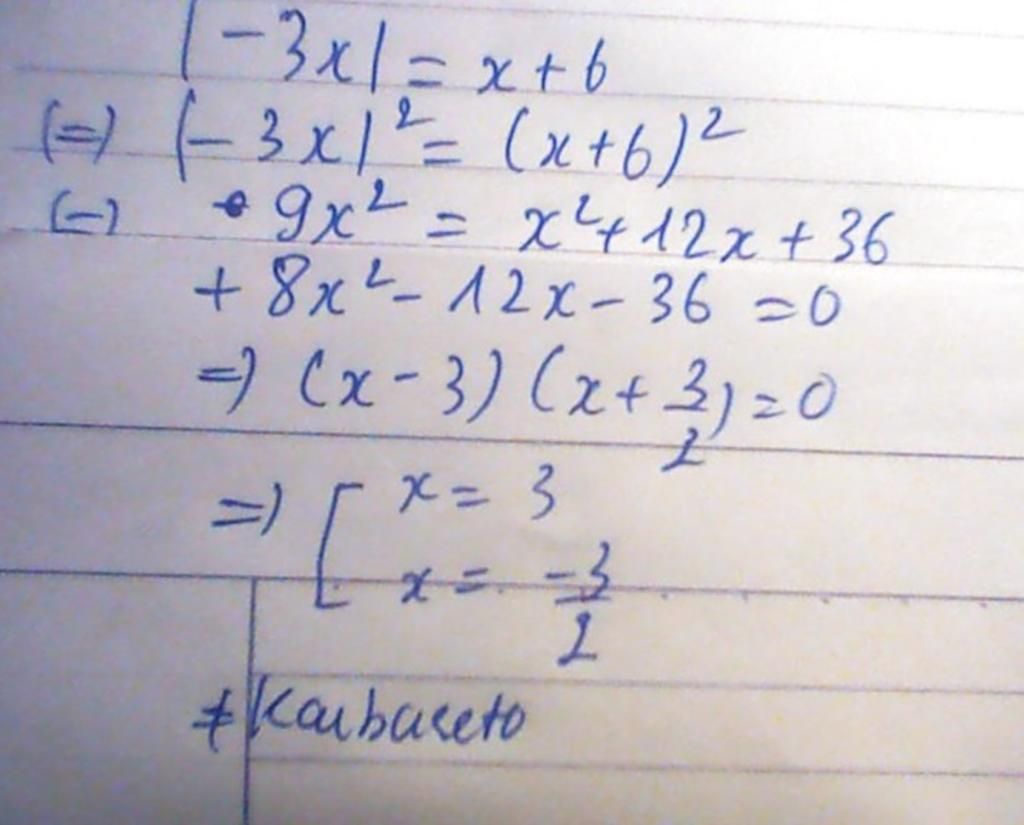 |-3x| = x+6
(=) |-3x|² = (x+6)²
(-) 9x² = x²+12x+36
+ 8x² - 12x - 36 = 0
=) (x-3) (x+3/2) = 0
=) [ x = 3
x = -3/2
≠Kaibaceto